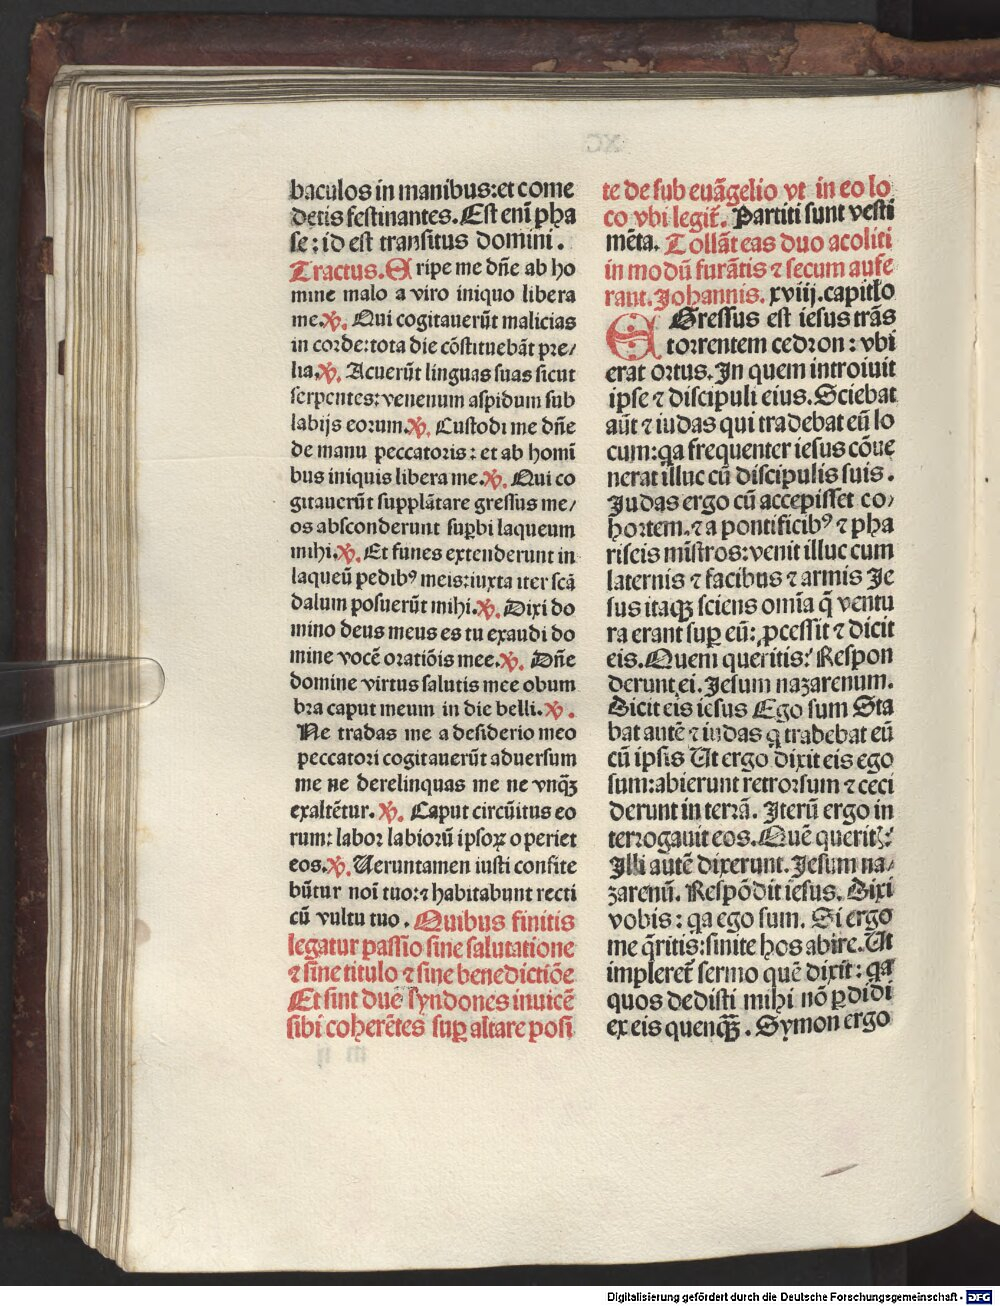 baculos in manibus: et come
detis festinantes. Est eni̅ pha
se: id est transitus domini.
Tractus. Eripe me dn̅e ab ho
mine malo a viro iniquo libera
me. V. Qui cogitaueru̅t malicias
in corde: tota die co̅stitueba̅t pre/
lia. V. Acueru̅t linguas suas sicut
serpentes: venenum aspidum sub
labijs eorum. V. Custodi me dn̅e
de manu peccatoris: et ab homi̅
bus iniquis libera me. V. Qui co
gitaueru̅t suppla̅tare gressus me/
os absconderunt sup̲bi laqueum
mihi. V. Et funes extenderunt in
laqueu̅ pedibꝰ meis: iuxta iter sca̅
dalum posueru̅t mihi. V. Dixi do
mino deus meus es tu exaudi do
mine voce̅ oratio̅is mee. V. Dn̅e
domine virtus salutis mee obum
bra caput meum in die belli. V.
Ne tradas me a desiderio meo
peccatori cogitaueru̅t aduersum
me ne derelinquas me ne vnqꝫ
exalte̅tur. V. Caput circu̅itus eo
rum: labor labioru̅ ipsoꝝ operiet
eos. V. Ueruntamen iusti confite
bu̅tur noi̅ tuo: ⁊ habitabunt recti
cu̅ vultu tuo. Quibus finitis
legatur passio sine salutatione
⁊ sine titulo ⁊ sine benedictio̅e
Et sint due syndones inuice̅
sibi cohere̅tes suꝑ altare posi
te de sub eua̅gelio vt in eo lo
co vbi legit̅. Partiti sunt vesti
me̅ta. Tolla̅t eas duo acoliti
in modu̅ fura̅tis ⁊ secum aufe
rant. Johannis. xviij. capitło
EGressus est iesus tra̅s
torrentem cedron: vbi
erat ortus. In quem introiuit
ipse ⁊ discipuli eius. Sciebat
au̅t ⁊ iudas qui tradebat eu̅ lo
cum: qa frequenter iesus co̅ue
nerat illuc cu̅ discipulis suis.
Judas ergo cu̅ accepisset co/
hortem. ⁊ a pontificibꝰ ⁊ pha
riseis mi̅stros: venit illuc cum
laternis ⁊ facibus ⁊ armis Je
sus itaqꝫ sciens omi̅a q̅ ventu
ra erant suꝑ eu̅: ꝓcessit ⁊ dicit
eis. Quem queritis? Respon
derunt ei. Jesum nazarenum.
Dicit eis iesus Ego sum Sta
bat aute̅ ⁊ iudas q̇ tradebat eu̅
cu̅ ipsis Ut ergo dixit eis ego
sum: abierunt retrorsum ⁊ ceci
derunt in terra̅. Iteru̅ ergo in
terrogauit eos. Que̅ querit̛?
Illi aute̅ dixerunt. Jesum na/
zarenu̅. Respo̅dit iesus. Dixi
vobis: qa ego sum. Si ergo
me q̅ritis: sinite hos abire. Ut
impleret̅ sermo que̅ dixit: qa
quos dedisti mihi no̅ ꝑdidi
ex eis quenqꝫ. Symon ergo
Digitalisierung gefördert durch die Deutsche Forschungsgemeinschaft - DFG